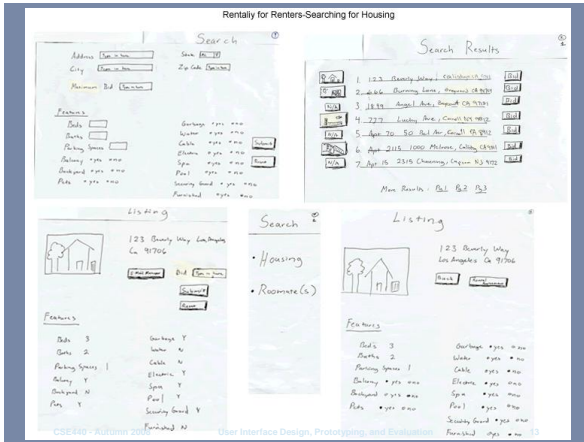 Rentaliy for Renters-Searching for Housing
Search
Address Type in here
State
City Type in here
Zip Code Type in here
Maximum Bid Type in here
Features
Beds
Baths
Parking Spaces
Balcony yes no
Backyard yes no
Pets yes no
Garbage yes no
Water yes no
Cable yes no
Electric yes no
Spa yes no
Pool yes no
Security Guard yes no
Furnished yes no
Submit
Reset
Search Results
1. 123 Beverly Way, Bid
2. 666 Burning Lane, Bid
N/A 3. 1899 Angel Ave, Bid
4. 777 Lucky Ave, Bid
N/A 5. Apt 70 50 Bel Air, Bid
6. Apt 2115 1000 Melrose, Bid
N/A 7. Apt 15 2315 Bid
More Results: Pg1 Pg2 Pg3
Listing
123 Beverly Way Los Angeles
Ca 91706
E-Mail Manager Bid Type in here
Submit
Reset
Features
Beds 3
Baths 2
Parking Spaces 1
Balcony Y
Backyard N
Pets Y
Garbage Y
Water N
Cable N
Electric Y
Spa Y
Pool Y
Security Guard Y
Furnished N
Search
Housing
Roomate(s)
Listing
123 Beverly Way
Los Angeles Ca 91706
Back
Features
Beds 3
Baths 2
Parking Spaces 1
Balcony yes no
Backyard yes no
Pets yes no
Garbage yes no
Water yes no
Cable yes no
Electric yes no
Spa yes no
Pool yes no
Security Guard yes no
Furnished yes no
CSE440 - Autumn 2008
User Interface Design, Prototyping, and Evaluation
13